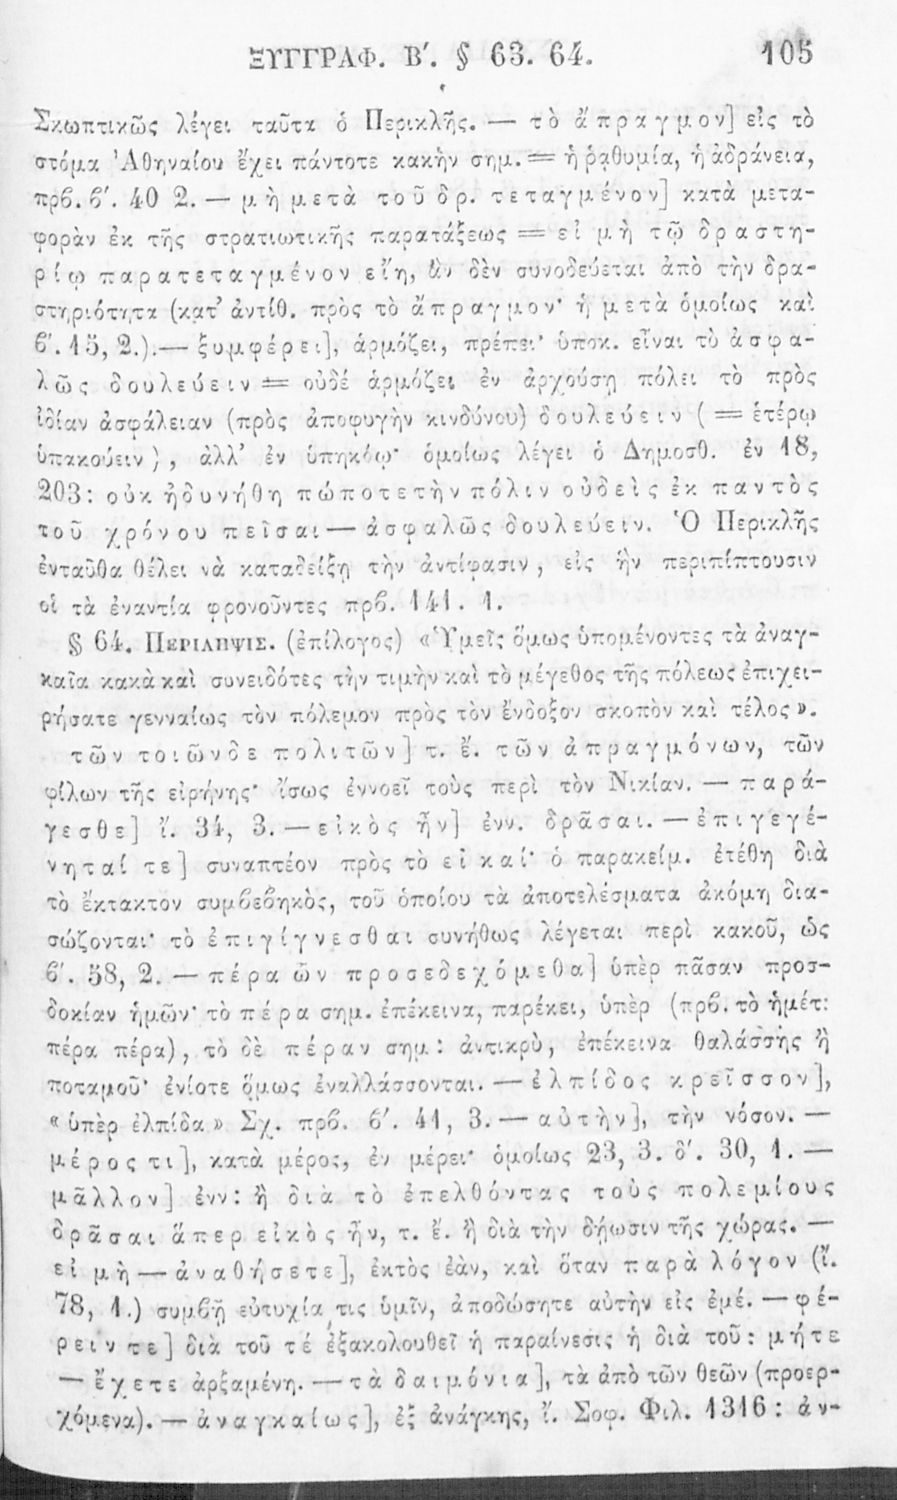 ΞΥΓΓΡΑΦ. Β΄. § 63. 64. 105
Σκωπτικῶς λέγει ταῦτα ὁ Περικλῆς. — τὸ ἄπραγμον] εἰς τὸ
στόμα Ἀθηναίου ἔχει πάντοτε κακὴν σημ. = ἡ ῥᾳθυμία, ἡ ἀδράνεια,
πρβ. β΄. 40 2. — μὴ μετὰ τοῦ δρ. τεταγμένον] κατὰ μετα-
φορὰν ἐκ τῆς στρατιωτικῆς παρατάξεως = εἰ μὴ τῷ δραστη-
ρίῳ παρατεταγμένον εἴη, ἂν δὲν συνοδεύεται ἀπὸ τὴν δρα-
στηριότητα (κατ' ἀντίθ. πρὸς τὸ ἄπραγμον· ἡ μετὰ ὁμοίως καὶ
β΄. 15, 2.).— ξυμφέρει], ἁρμόζει, πρέπει· ὑποκ. εἶναι τὸ ἀσφα-
λῶς δουλεύειν = οὐδέ ἁρμόζει ἐν ἀρχούσῃ πόλει τὸ πρὸς
ἰδίαν ἀσφάλειαν (πρὸς ἀποφυγὴν κινδύνου) δουλεύειν (= ἑτέρῳ
ὑπακούειν), ἀλλ' ἐν ὑπηκόῳ· ὁμοίως λέγει ὁ Δημοσθ. ἐν 18,
203: οὐκ ἠδυνήθη πώποτε τὴν πόλιν οὐδεὶς ἐκ παντὸς
τοῦ χρόνου πεῖσαι — ἀσφαλῶς δουλεύειν. Ὁ Περικλῆς
ἐνταῦθα θέλει νὰ καταδείξῃ τὴν ἀντίφασιν, εἰς ἣν περιπίπτουσιν
οἱ τὰ ἐναντία φρονοῦντες πρβ. 141. 1.
§ 64. Περιληψις. (ἐπίλογος) «Ὑμεῖς ὅμως ὑπομένοντες τὰ ἀναγ-
καῖα κακὰ καὶ συνειδότες τὴν τιμὴν καὶ τὸ μέγεθος τῆς πόλεως ἐπιχει-
ρήσατε γενναίως τὸν πόλεμον πρὸς τὸν ἔνδοξον σκοπὸν καὶ τέλος».
τῶν τοιῶνδε πολιτῶν] τ. ἔ. τῶν ἀπραγμόνων, τῶν
φίλων τῆς εἰρήνης· ἴσως ἐννοεῖ τοὺς περὶ τὸν Νικίαν. — παρά-
γεσθε] ἴ. 34, 3. — εἰκὸς ἦν] ἐνν. δρᾶσαι. — ἐπιγεγέ-
νηταί τε] συναπτέον πρὸς τὸ εἰ καί· ὁ παρακείμ. ἐτέθη διὰ
τὸ ἔκτακτον συμβεβηκὸς, τοῦ ὁποίου τὰ ἀποτελέσματα ἀκόμη δια-
σώζονται· τὸ ἐπιγίγνεσθαι συνήθως λέγεται περὶ κακοῦ, ὡς
β΄. 58, 2. — πέρα ὧν προσεδεχόμεθα] ὑπὲρ πᾶσαν προσ-
δοκίαν ἡμῶν· τὸ πέρα σημ. ἐπέκεινα, παρέκει, ὑπὲρ (πρβ. τὸ ἡμέτ:
πέρα πέρα), τὸ δὲ πέραν σημ: ἀντικρὺ, ἐπέκεινα θαλάσσης ἢ
ποταμοῦ· ἐνίοτε ὅμως ἐναλλάσσονται. — ἐλπίδος κρεῖσσον],
«ὑπὲρ ἐλπίδα» Σχ. πρβ. β΄. 41, 3. — αὐτὴν], τὴν νόσον. —
μέρος τι], κατὰ μέρος, ἐν μέρει· ὁμοίως 23, 3. δ΄. 30, 1. —
μᾶλλον] ἐνν: ἢ διὰ τὸ ἐπελθόντας τοὺς πολεμίους
δρᾶσαι ἅπερ εἰκὸς ἦν, τ. ἔ. ἢ διὰ τὴν δῄωσιν τῆς χώρας. —
εἰ μὴ — ἀναθήσετε], ἐκτὸς ἐὰν, καὶ ὅταν παρὰ λόγον (ἴ.
78, 1.) συμβῇ εὐτυχία τις ὑμῖν, ἀποδώσητε αὐτὴν εἰς ἐμέ. — φέ-
ρειν τε] διὰ τοῦ τέ ἐξακολουθεῖ ἡ παραίνεσις ἡ διὰ τοῦ: μήτε
— ἔχετε ἀρξαμένη. — τὰ δαιμόνια], τὰ ἀπὸ τῶν θεῶν (προερ-
χόμενα). — ἀναγκαίως], ἐξ ἀνάγκης, ἴ. Σοφ. Φιλ. 1316: ἀν-